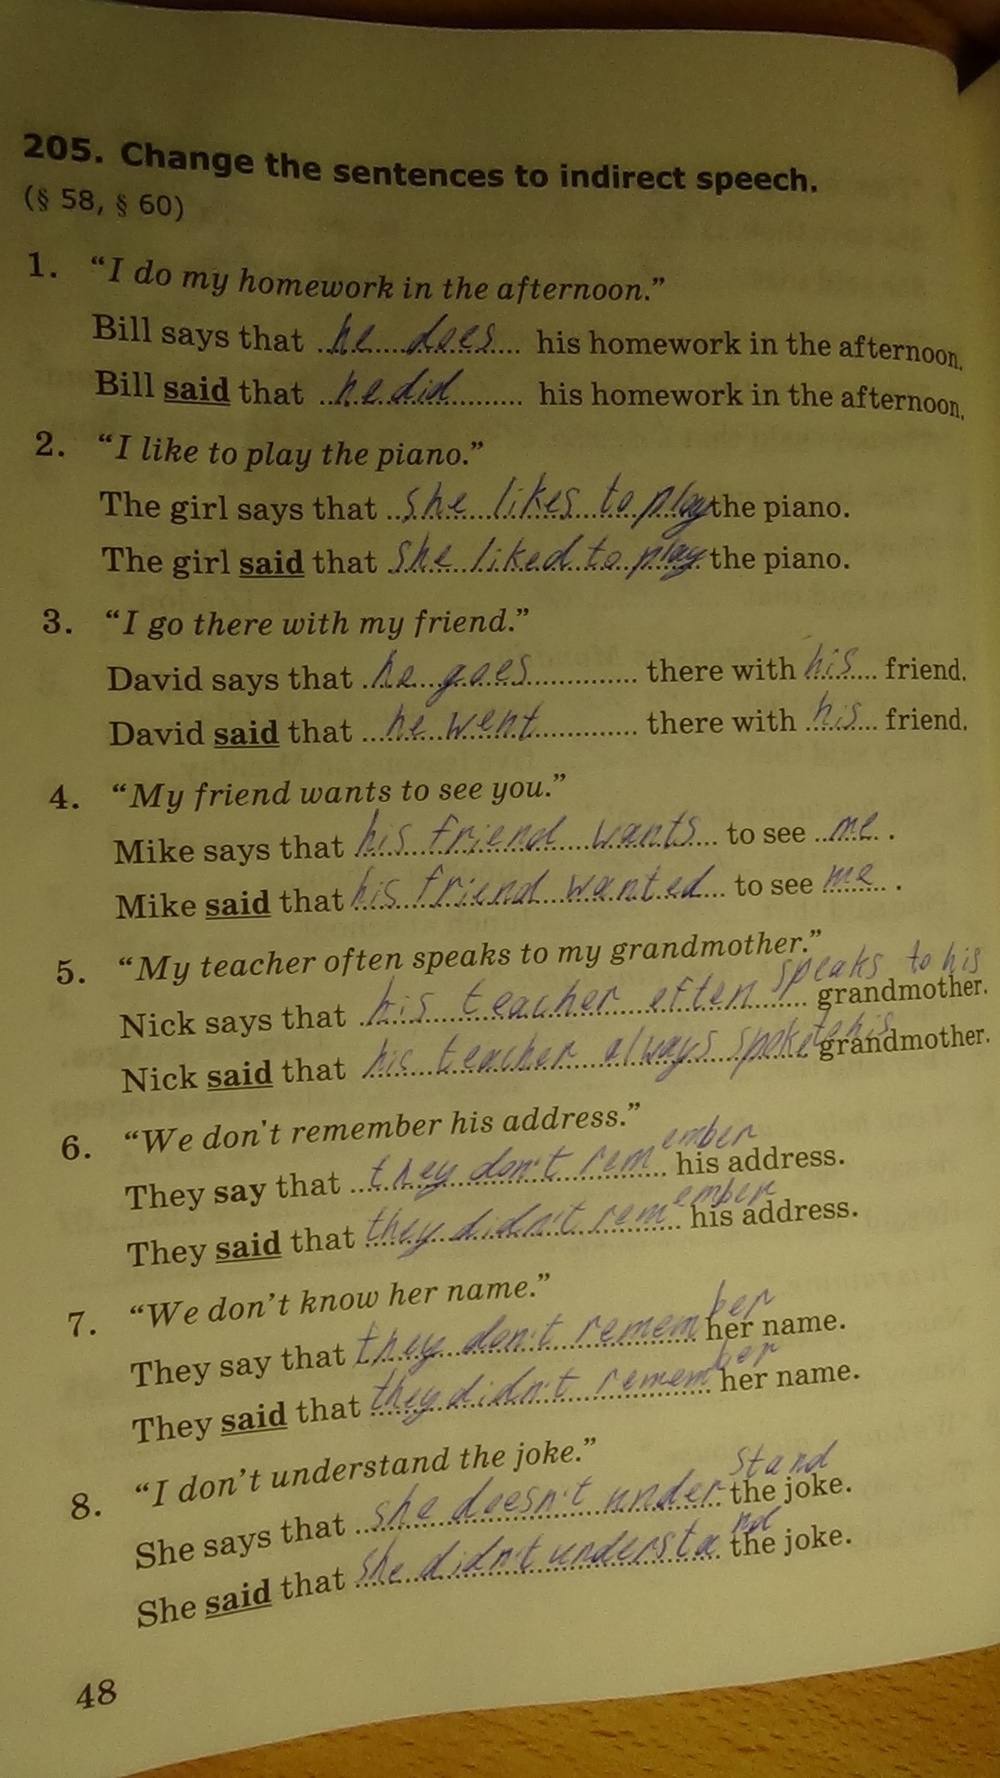 205. Change the sentences to indirect speech.
(§ 58, § 60)
1. “I do my homework in the afternoon.”
Bill says that he does his homework in the afternoon.
Bill said that he did his homework in the afternoon.
2. “I like to play the piano.”
The girl says that she likes to play the piano.
The girl said that she liked to play the piano.
3. “I go there with my friend.”
David says that he goes there with his friend.
David said that he went there with his friend.
4. “My friend wants to see you.”
Mike says that his friend wants to see me.
Mike said that his friend wanted to see me.
5. “My teacher often speaks to my grandmother.”
Nick says that his teacher often speaks to his grandmother.
Nick said that his teacher always spoke to his grandmother.
6. “We don't remember his address.”
They say that they don't remember his address.
They said that they didn't remember his address.
7. “We don’t know her name.”
They say that they don't remember her name.
They said that they didn't remember her name.
8. “I don’t understand the joke.”
She says that she doesn't understand the joke.
She said that she didn't understand the joke.
48